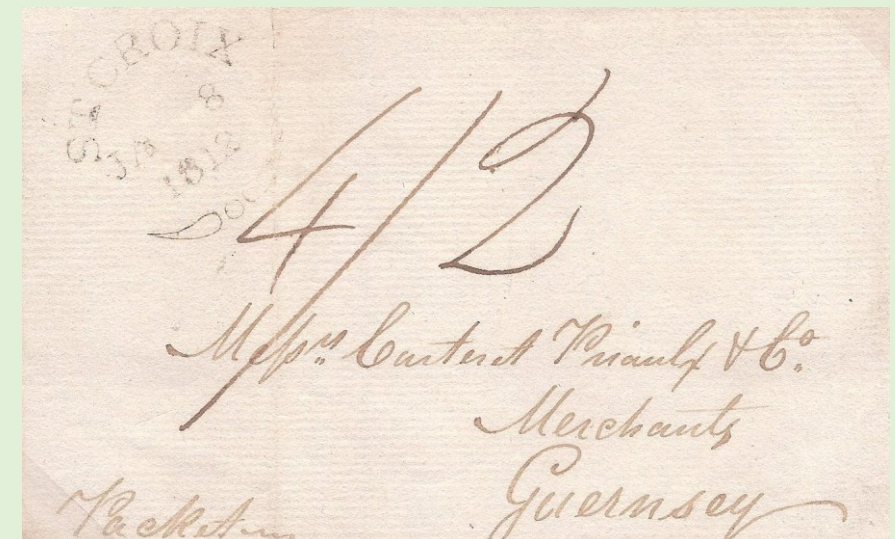 ST CROIX
JA 8
1812
4/2
Messrs. Carteret Priaulx & Co.
Merchants
Guernsey
Packet